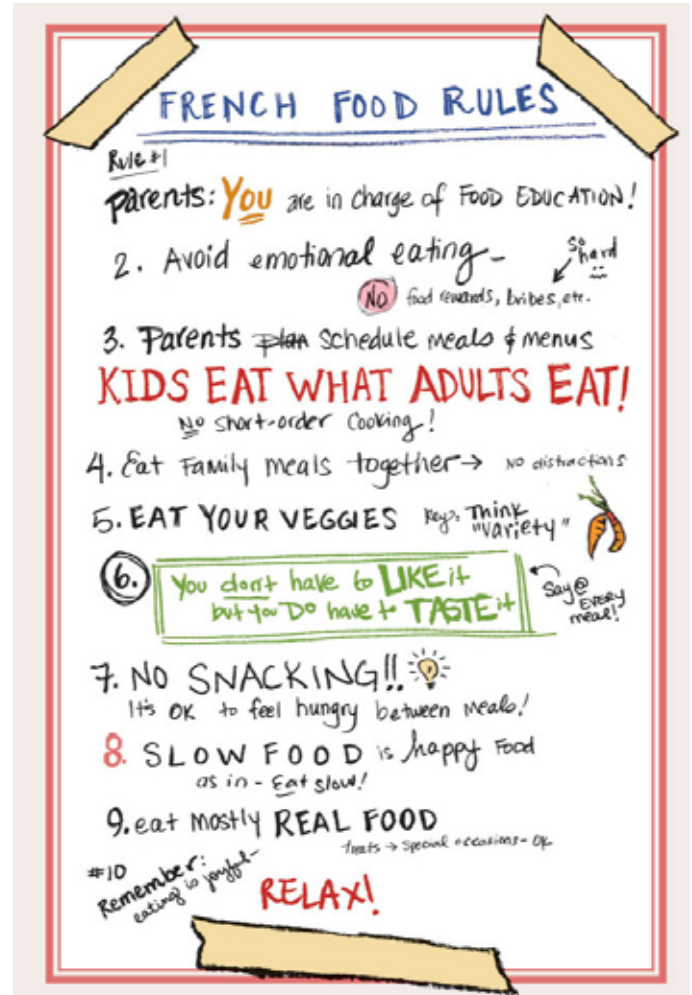 FRENCH FOOD RULES
Rule #1
parents: YOU are in charge of FOOD EDUCATION!
2. Avoid emotional eating-
So hard
NO food rewards, bribes, etc.
3. Parents plan schedule meals & menus
KIDS EAT WHAT ADULTS EAT!
No short-order cooking!
4. Eat Family meals together → No distractions
5. EAT YOUR VEGGIES Key: Think
"variety"
6. You don't have to LIKE it
but you DO have to TASTE it
Say @
EVERY
meal!
7. NO SNACKING!!
It's OK to feel hungry between meals!
8. SLOW FOOD is happy Food
as in - Eat slow!
9. eat mostly REAL FOOD
treats → special occasions - OK
#10
Remember:
eating is joyful-
RELAX!